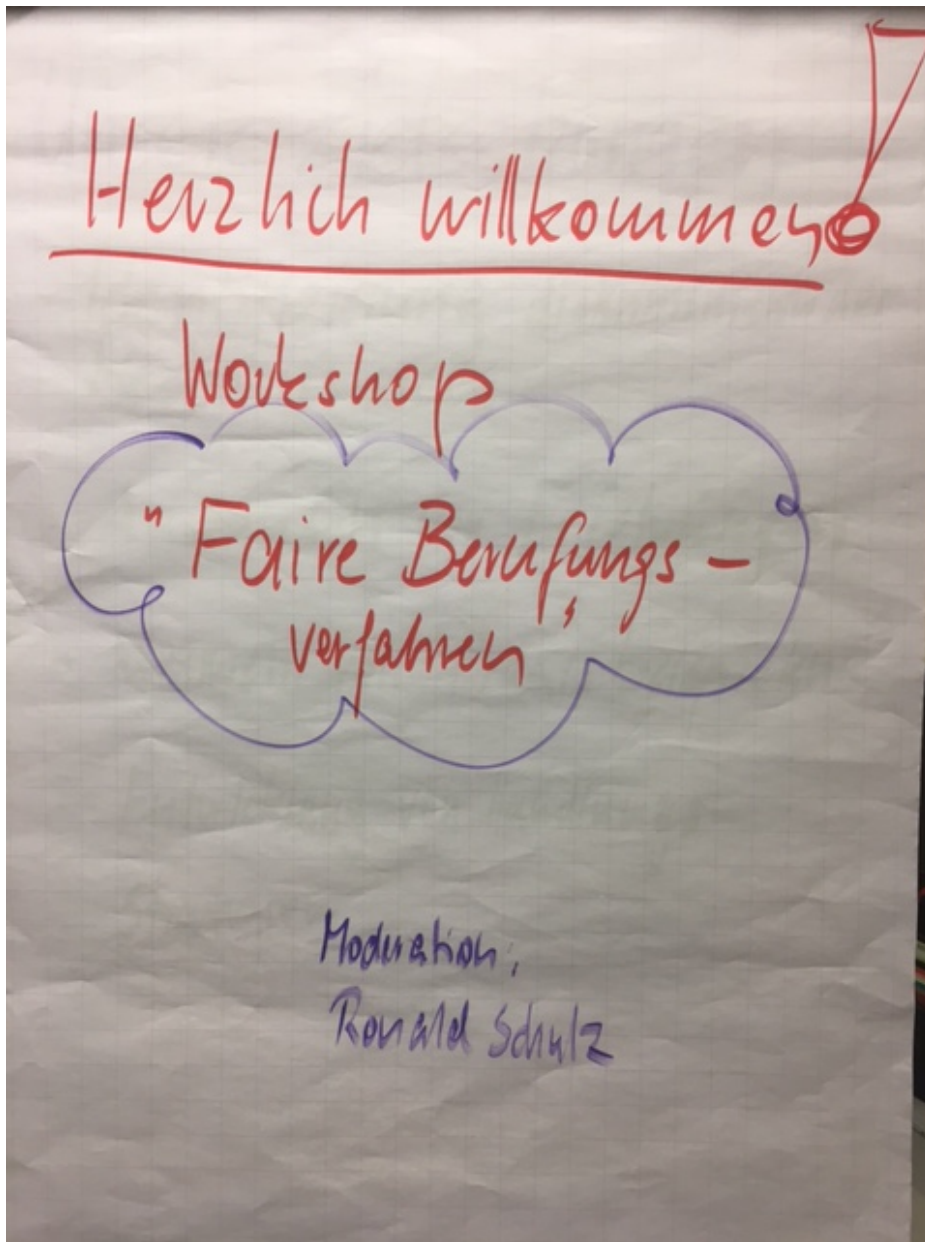 Herzlich willkommen!
Workshop
"Faire Berufungs-
verfahren"
Moderation:
Ronald Schulz